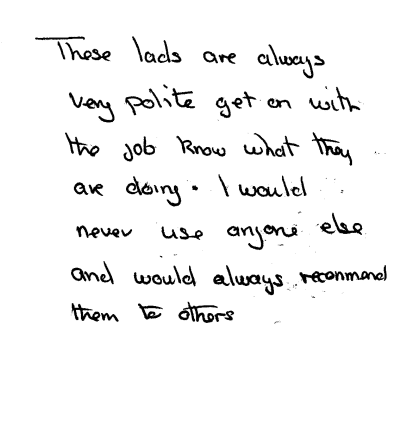 These lads are always
very polite get on with
the job know what they
are doing. I would
never use anyone else
and would always recommend
them to others